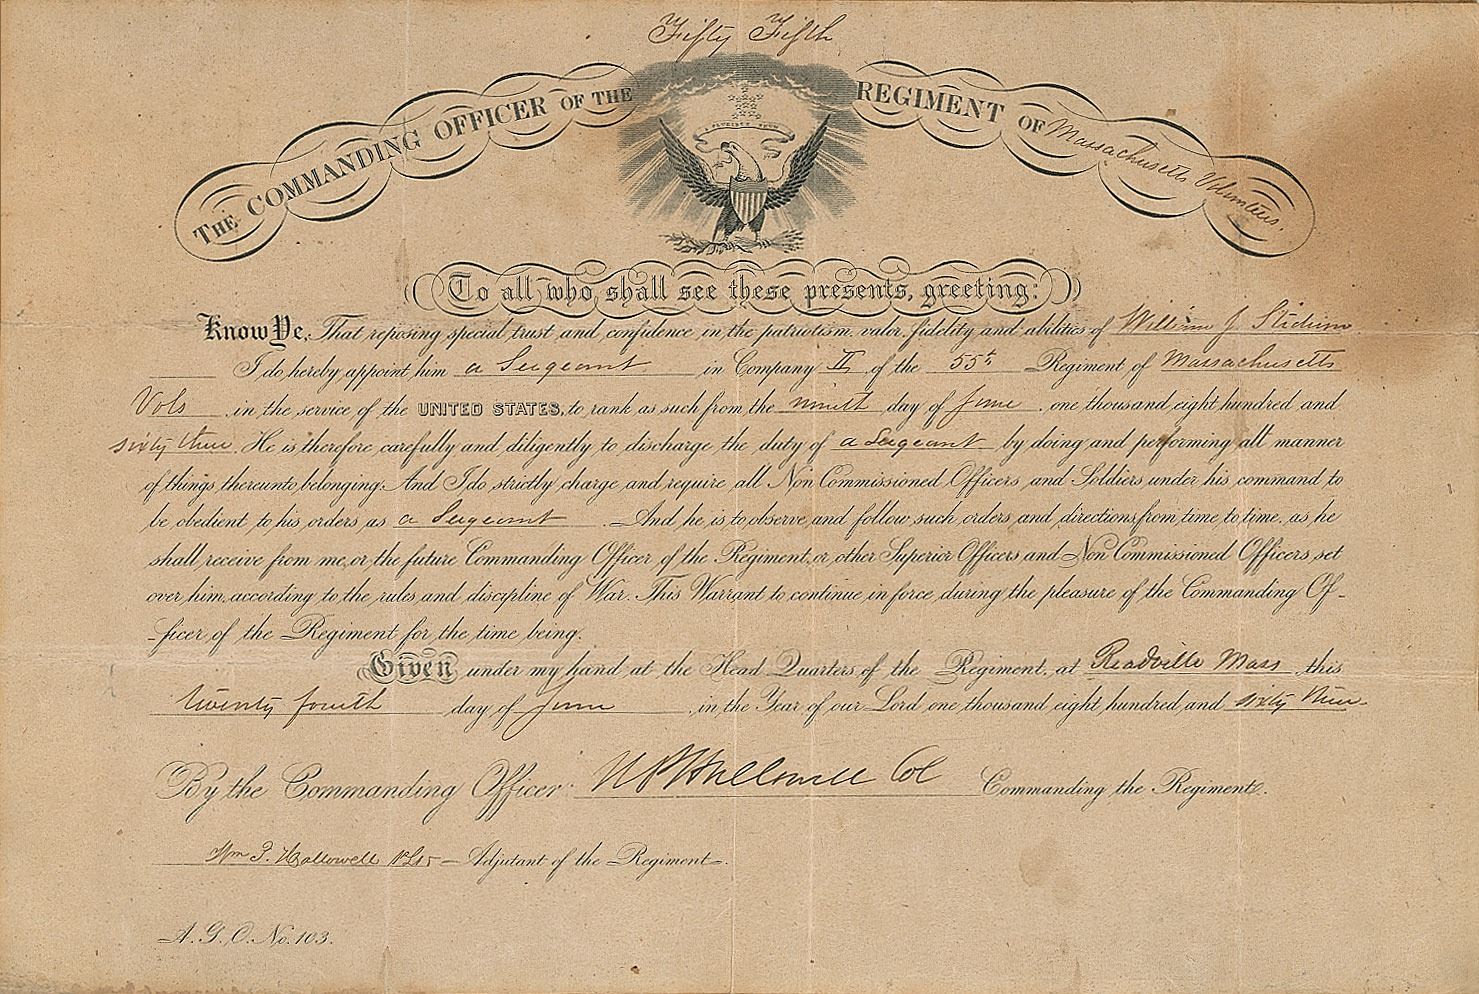 Fifty Fifth
THE COMMANDING OFFICER OF THE REGIMENT OF Massachusetts Volunteers.
E PLURIBUS UNUM
To all who shall see these presents, greeting:
Know Ye, That reposing special trust and confidence in the patriotism, valor, fidelity and abilities of William J
I do hereby appoint him a Sergeant in Company of the 55th Regiment of Massachusetts
Vols in the service of the UNITED STATES, to rank as such from the ninth day of June, one thousand eight hundred and
sixty three. He is therefore carefully and diligently to discharge the duty of a Sergeant by doing and performing all manner
of things thereunto belonging. And I do strictly charge and require all Non Commissioned Officers and Soldiers under his command to
be obedient to his orders as a Sergeant. And he is to observe and follow such orders and directions from time to time, as he
shall receive from me, or the future Commanding Officer of the Regiment, or other Superior Officers and Non Commissioned Officers set
over him, according to the rules and discipline of War. This Warrant to continue in force during the pleasure of the Commanding Of-
-ficer of the Regiment for the time being.
Given under my hand at the Head Quarters of the Regiment, at Readville Mass this
twenty fourth day of June, in the Year of our Lord one thousand eight hundred and sixty three.
By the Commanding Officer: N P Hallowell Col Commanding the Regiment.
Wm P. Hallowell Adjutant of the Regiment.
A. G. O. No. 103.